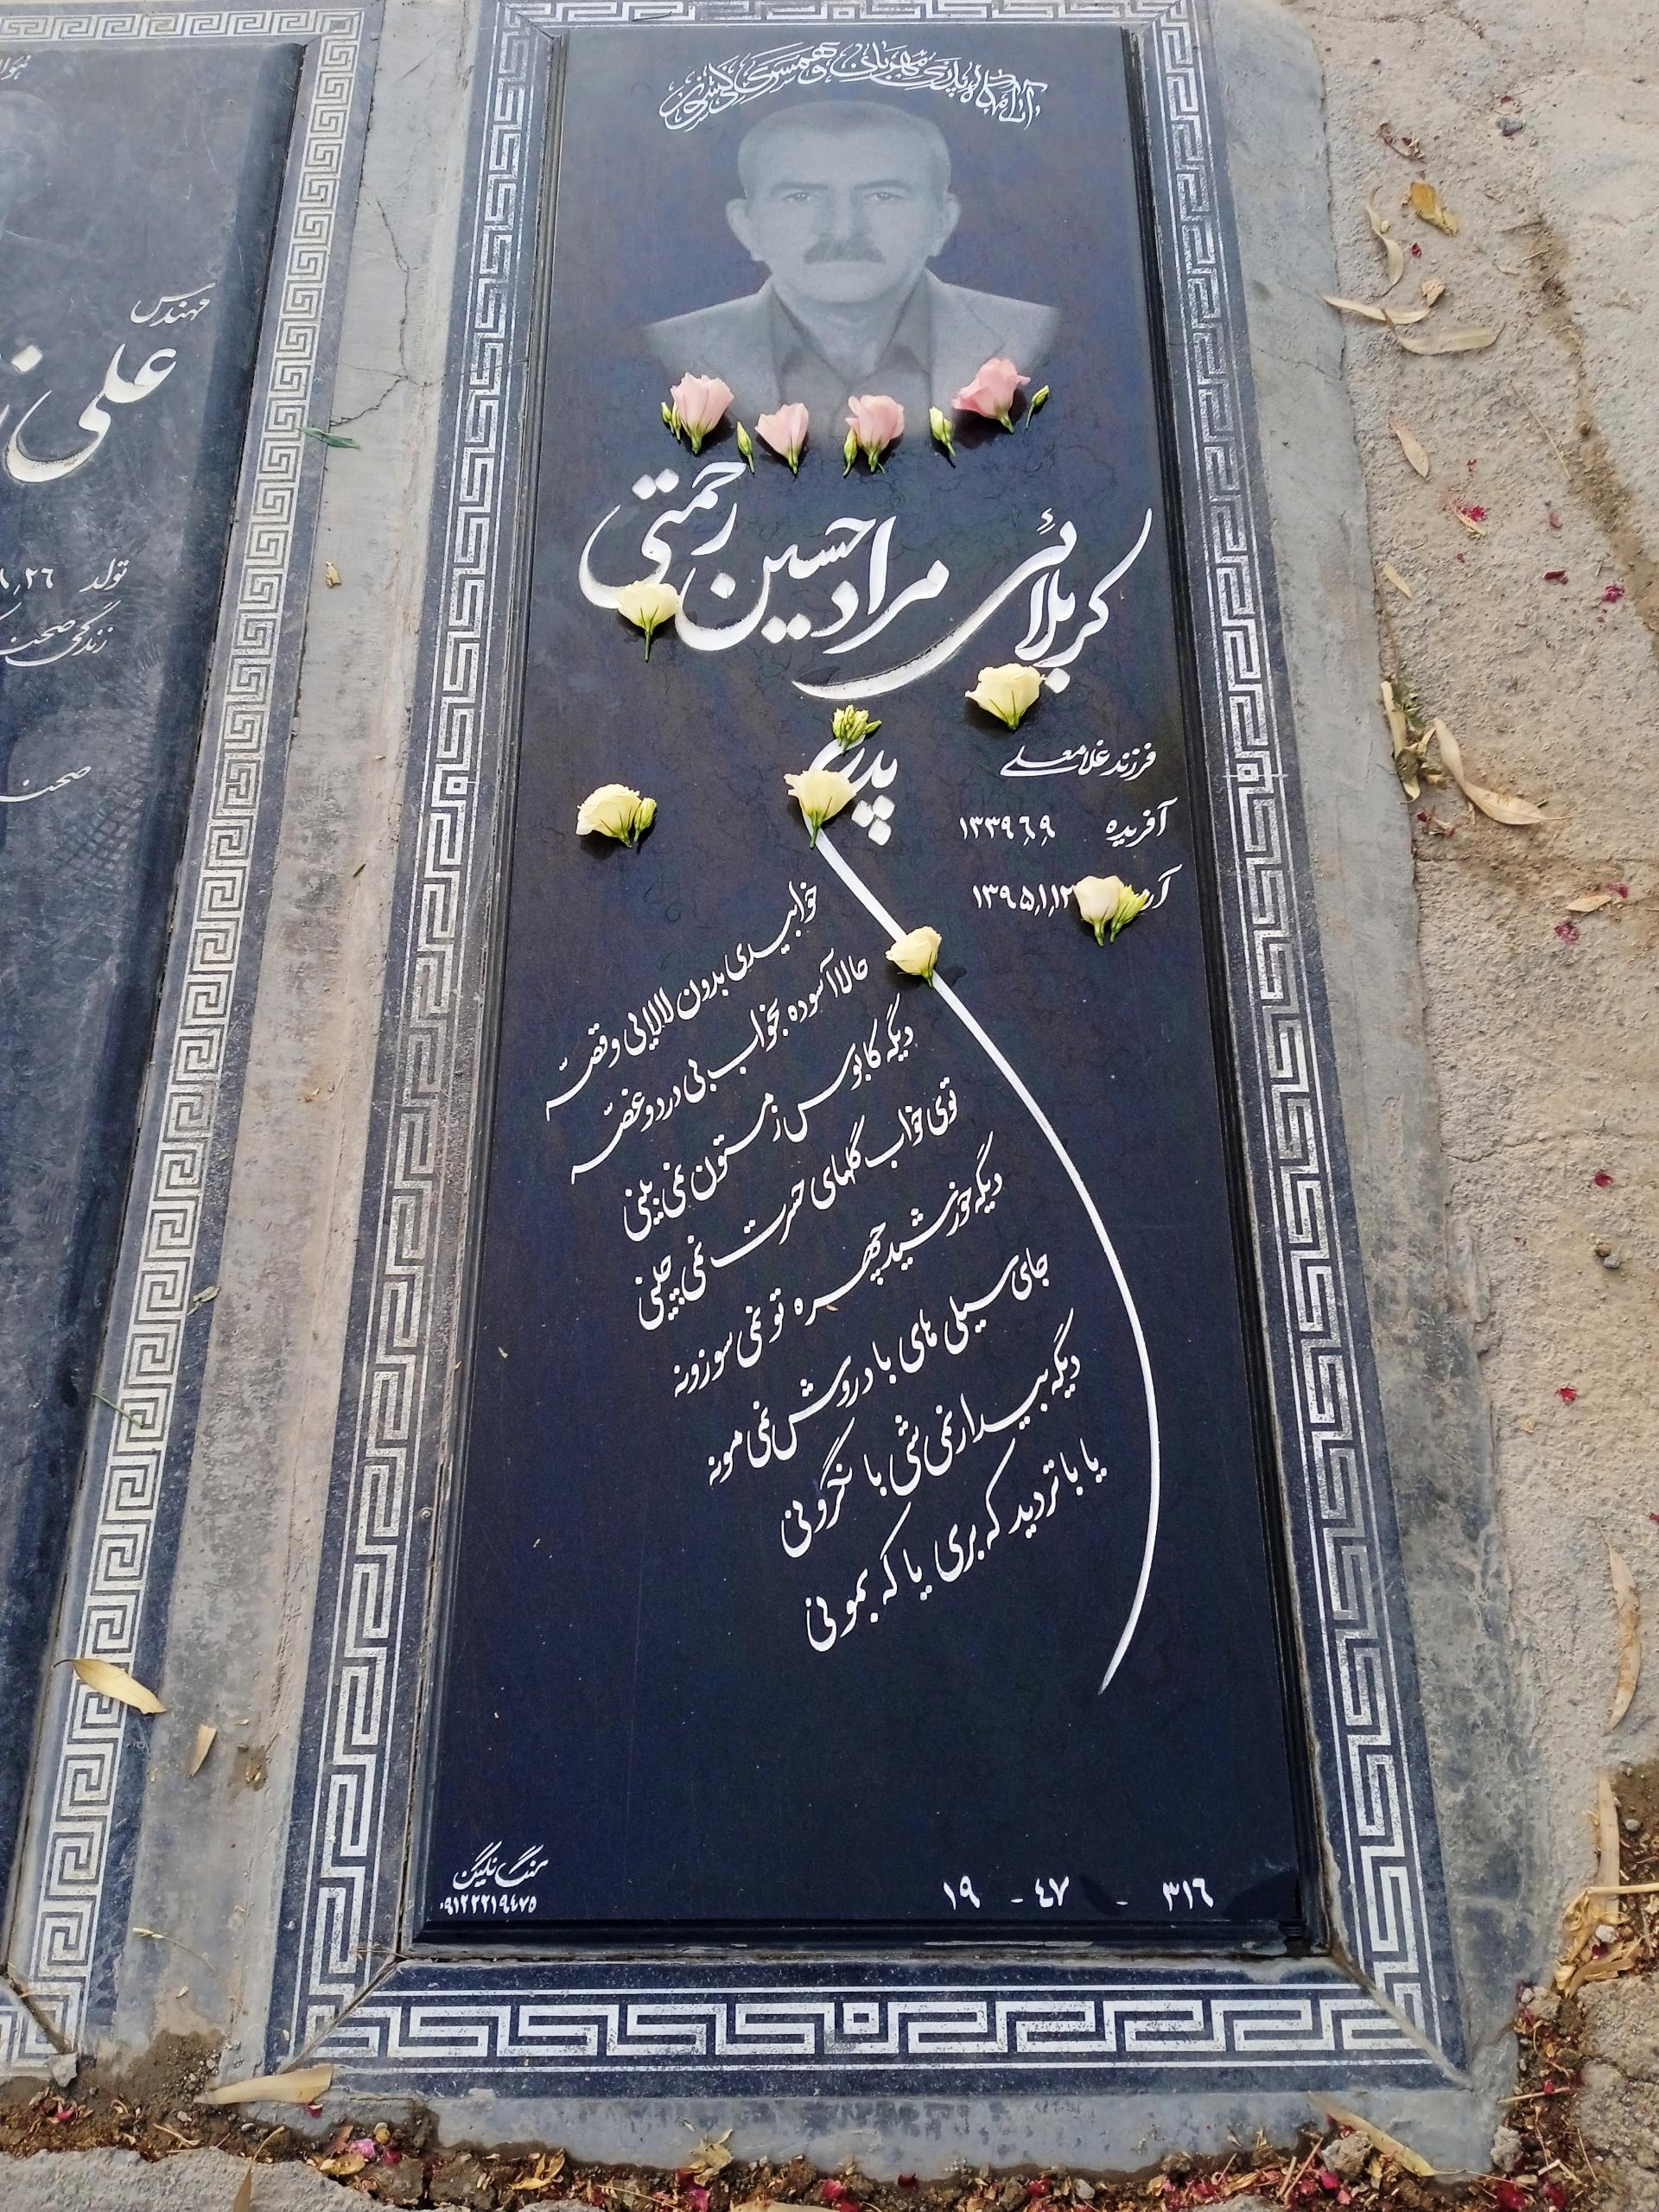 آرامگاه پدری مهربان و همسری
کربلائی مراد حسین رحمتی
فرزند غلامعلی
آفریده ۱۳۳۹٫۶٫۹
۱۳۹۵٫۱٫۱۲
پدرم
خوابیدی بدون لالایی و قصّه
حالا آسوده بخواب بی درد و غصّه
دیگه کابوس زمستون نمی بینی
توی خواب گلهای حسرت نمی چینی
دیگه خورشید چهره تو نمی سوزونه
جای سیلی های باد روش نمی مونه
دیگه بیدار نمی شی با نگرونی
یا با تردید که بری یا که بمونی
۳۱۶ - ۴۷ - ۱۹
سنگ نگین
۰۹۱۲۲۲۱۹۴۷۵
مهندس
علی
تولد
زندگی صحنه
صحنه